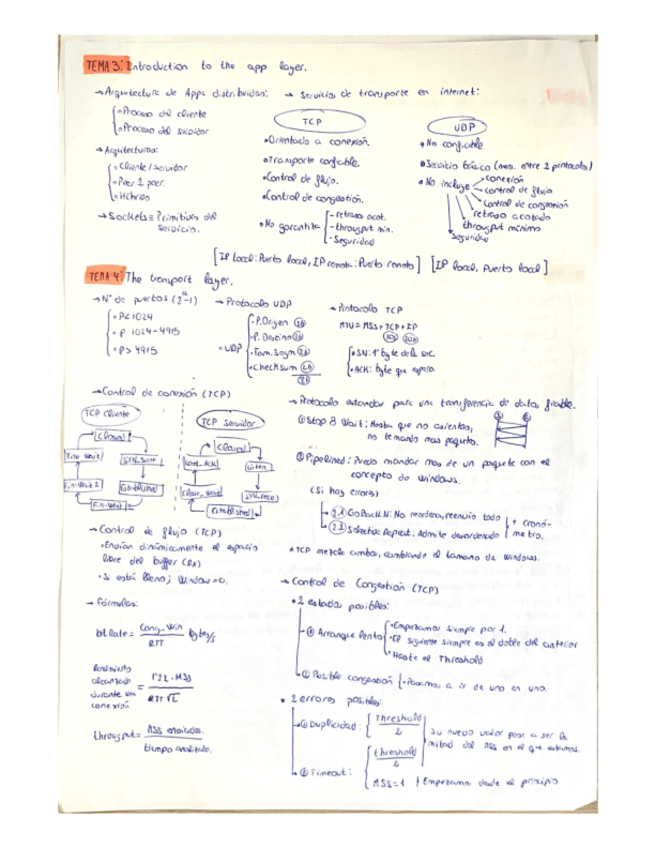 TEMA 3: Introduction to the app layer.
→ Arquitectura de Apps distribuidas:
• Proceso del cliente
• Proceso del servidor
→ Arquitecturas:
• Cliente/Servidor
• Peer 2 peer.
• Híbridas
→ Sockets = Primitivas del
servicio.
→ Servicios de transporte en internet:
TCP
• Orientado a conexión.
• Transporte confiable.
• Control de flujo.
• Control de congestión.
• No garantiza
- retraso acot.
- througput min.
- Seguridad
[IP local: Puerto local, IP remota: Puerto remoto]
UDP
• No confiable
• Servicio básico (mens. entre 2 protocolos)
• No incluye
conexión
control de flujo
control de congestión
retraso acotado
througput mínimo
Seguridad
[IP local, Puerto local]
TEMA 4: The transport layer.
→ Nº de puertos (2^16-1)
• P<1024
• P 1024-4915
• P> 4915
→ Protocolo UDP
• UDP
• P. Origen 2B
• P. Destino 2B
• Tam. Segm 2B
• Checksum 2B
8B
→ Protocolo TCP
MTU = MSS + TCP + IP
20B 20B
• SN: 1º byte de la sec.
• ACK: byte que espera.
→ Control de conexión (TCP)
TCP Cliente
Closed
Time Wait
SYN_Sent
Fin-Wait 2
Established
Fin-Wait 1
TCP Servidor
Closed
Last_ACK
Listen
Close_Wait
SYN-recv
Established
→ Protocolo estandar para una transferencia de datos fiable.
① Stop & Wait: Hasta que no contestes,
no te mando mas paquetes.
② Pipelined: Puedo mandar mas de un paquete con el
concepto de Windows.
(Si hay errores)
2.1 Go Back N: No reordena, reenvio todo
2.2 Selective Repeat: Admite desordenado
+ cronó-
metro.
• TCP mezcla ambos, cambiando el tamano de windows.
→ Control de flujo (TCP)
• Envian dinámicamente el espacio
libre del buffer (Rx)
• Si está lleno; Window=0.
→ Fórmulas:
bit Rate = Cong_Win / RTT bytes/s
Rendimiento
alcanzado
durante una
conexión
= 1'22 · MSS / RTT √L
througput = MSS enviados / tiempo analizado.
→ Control de Congestión (TCP)
• 2 estados posibles:
① Arranque lento
• Empezamos siempre por 1.
• El siguiente siempre es el doble del anterior
• Hasta el Threshold
② Posible congestión
• Pasamos a ir de uno en uno.
• 2 errores posibles:
① Duplicidad:
Threshold / 2
② Timeout:
threshold / 2
MSS=1
Su nuevo valor pasa a ser la
mitad del MSS en el que estamos.
Empezamos desde el principio